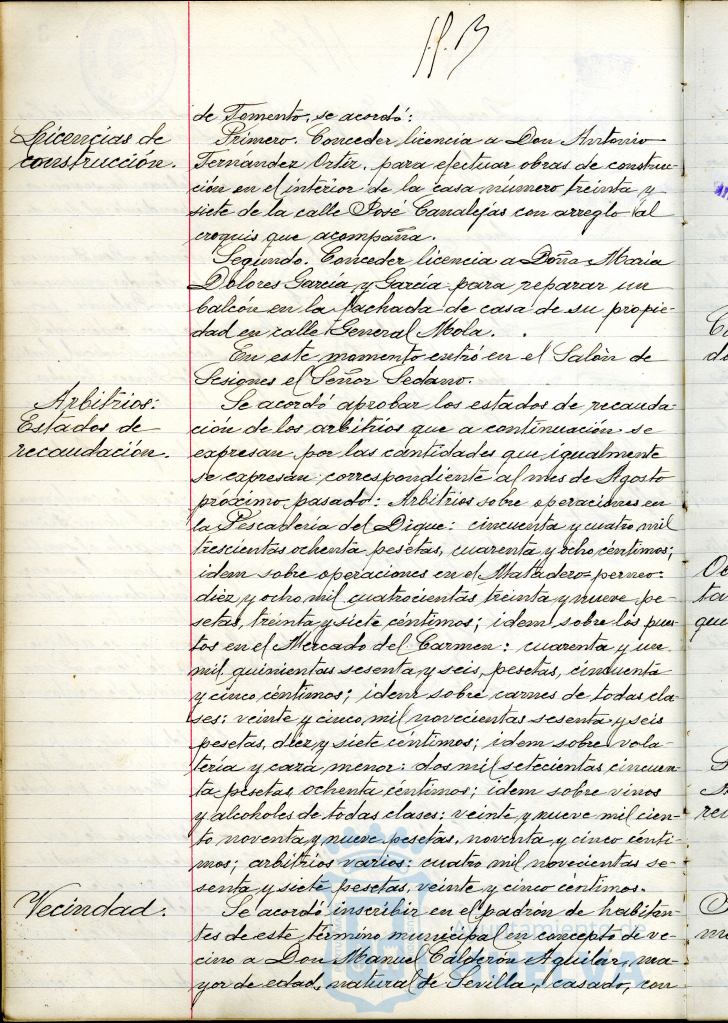 de Fomento, se acordó:
Licencias de
construcción.
Primero. Conceder licencia a Don Antonio
Fernández Ortiz, para efectuar obras de construc-
ción en el interior de la casa número treinta y
siete de la calle José Canalejas con arreglo al
croquis que acompaña.
Segundo. Conceder licencia a Doña María
Dolores García y García para reparar un
balcón en la fachada de casa de su propie-
dad en calle General Mola.
En este momento entró en el Salón de
Sesiones el Señor Sedano.
Arbitrios:
Estados de
recaudación.
Se acordó aprobar los estados de recauda-
ción de los arbitrios que a continuación se
expresan, por las cantidades que igualmente
se expresan, correspondiente al mes de Agosto
próximo pasado: Arbitrios sobre operaciones en
la Pescadería del Dique: cincuenta y cuatro mil
trescientas ochenta pesetas, cuarenta y ocho céntimos;
idem sobre operaciones en el Matadero=perneo:
diez y ocho mil cuatrocientas treinta y nueve pe-
setas, treinta y siete céntimos; idem sobre los pues-
tos en el Mercado del Carmen: cuarenta y un
mil quinientas sesenta y seis, pesetas, cincuenta
y cinco céntimos; idem sobre carnes de todas cla-
ses: veinte y cinco mil novecientas sesenta y seis
pesetas, diez y siete céntimos; idem sobre vola-
tería y caza menor: dos mil setecientas cincuen-
ta pesetas ochenta céntimos; idem sobre vinos
y alcoholes de todas clases: veinte y nueve mil cien-
to noventa y nueve pesetas, noventa y cinco cénti-
mos; arbitrios varios: cuatro mil novecientas se-
senta y siete pesetas, veinte y cinco céntimos.
Vecindad:
Se acordó inscribir en el padrón de habitan-
tes de este término municipal en concepto de ve-
cino a Don Manuel Calderón Aguilar, ma-
yor de edad, natural de Sevilla, casado, con
Ayuntamiento de
HUELVA